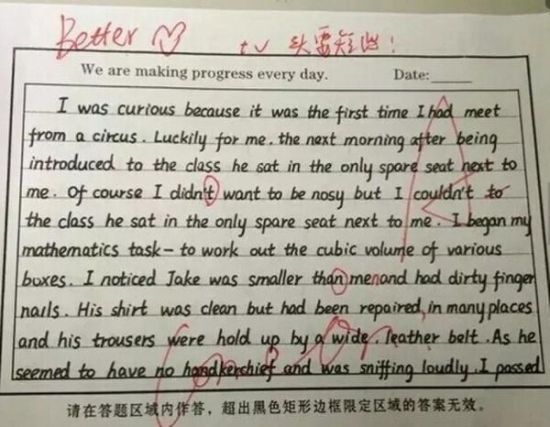 Better
t v 头要短些!
We are making progress every day. Date:
I was curious because it was the first time I had meet
from a circus. Luckily for me, the next morning after being
introduced to the class he sat in the only spare seat next to
me. Of course I didn't want to be nosy but I couldn't to
the class he sat in the only spare seat next to me. I began my
mathematics task - to work out the cubic volume of various
boxes. I noticed Jake was smaller than menand had dirty finger
nails. His shirt was clean but had been repaired in many places
and his trousers were hold up by a wide, leather belt. As he
seemed to have no handkerchief and was sniffing loudly. I passed
请在答题区域内作答，超出黑色矩形边框限定区域的答案无效。